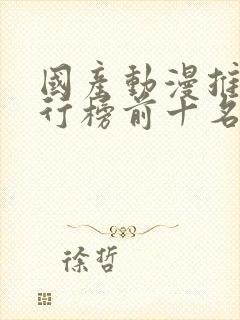 國產動漫推
行榜前十名
徐哲